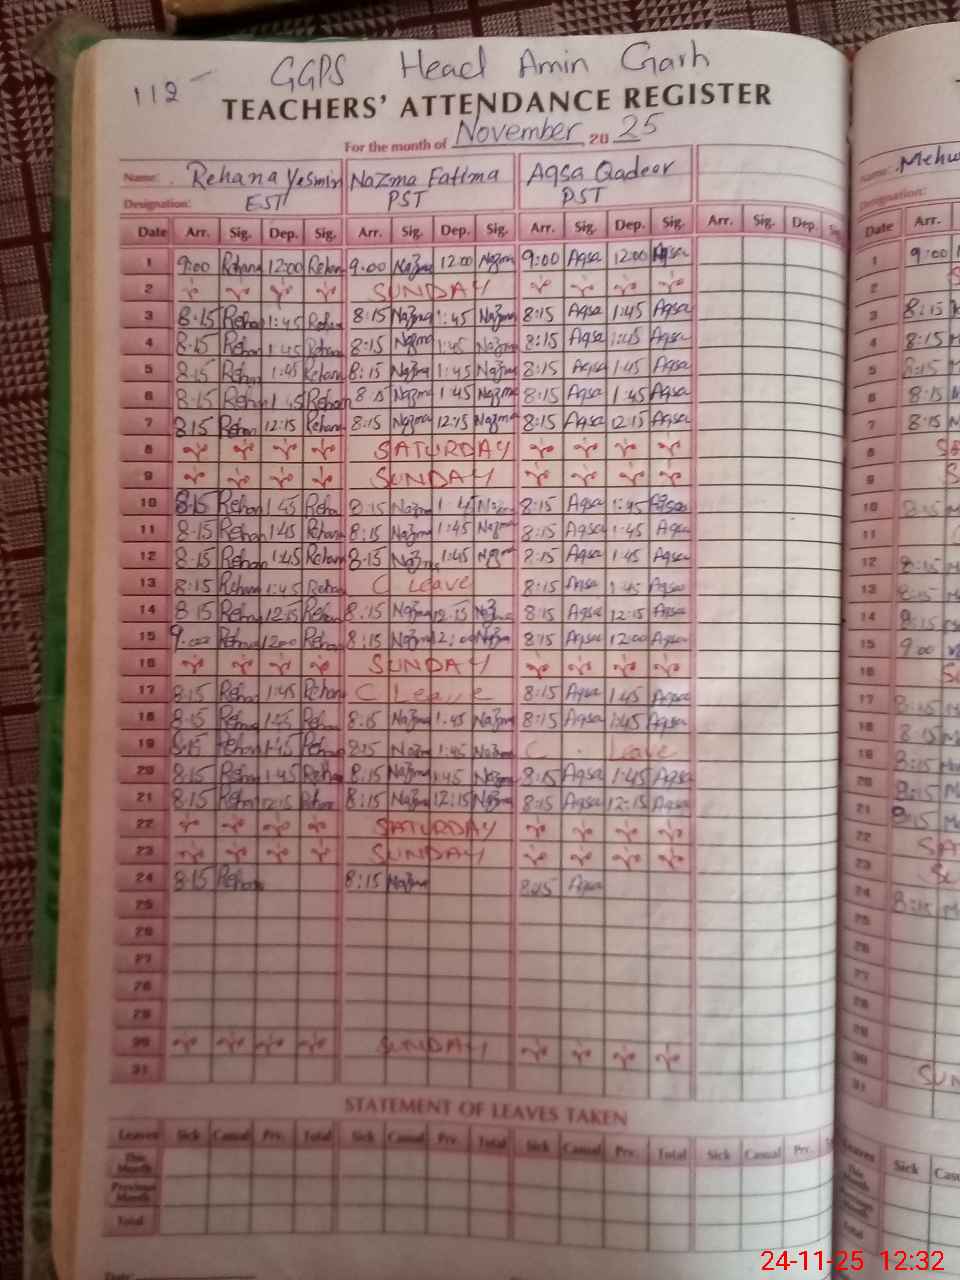 112
GGPS Head Amin Garh
TEACHERS' ATTENDANCE REGISTER
For the month of November 2025
Name: Rehana Yesmin Nazma Fatima Aqsa Qadeer
Designation: EST PST PST
Date Arr. Sig. Dep. Sig. Arr. Sig. Dep. Sig. Arr. Sig. Dep. Sig. Arr. Sig. Dep. Sig
1 9:00 Rehana 12:00 Rehan 9:00 Nazma 12:00 Nazma 9:00 Aqsa 12:00 Aqsa
2 SUNDAY
3 8:15 Rehan 1:45 Rehan 8:15 Nazma 1:45 Nazma 8:15 Aqsa 1:45 Aqsa
4 8:15 Rehan 1:45 Rehan 8:15 Nazma 1:45 Nazma 8:15 Aqsa 1:45 Aqsa
5 8:15 Rehan 1:45 Rehan 8:15 Nazma 1:45 Nazma 8:15 Aqsa 1:45 Aqsa
6 8:15 Rehan 1:45 Rehan 8:15 Nazma 1:45 Nazma 8:15 Aqsa 1:45 Aqsa
7 8:15 Rehan 12:15 Rehan 8:15 Nazma 12:15 Nazma 8:15 Aqsa 12:15 Aqsa
8 SATURDAY
9 SUNDAY
10 8:15 Rehan 1:45 Reha 8:15 Nazma 1:45 Nazma 8:15 Aqsa 1:45 Aqsa
11 8:15 Rehan 1:45 Rehan 8:15 Nazma 1:45 Nazma 8:15 Aqsa 1:45 Aqsa
12 8:15 Rehan 1:45 Rehan 8:15 Nazma 1:45 Nazma 8:15 Aqsa 1:45 Aqsa
13 8:15 Rehan 1:45 Rehan C Leave 8:15 Aqsa 1:45 Aqsa
14 8:15 Rehan 12:15 Rehan 8:15 Nazma 12:15 Nazma 8:15 Aqsa 12:15 Aqsa
15 9:00 Rehan 12:00 Rehan 8:15 Nazma 12:00 Nazma 8:15 Aqsa 12:00 Aqsa
16 SUNDAY
17 8:15 Rehan 1:45 Rehan C Leave 8:15 Aqsa 1:45 Aqsa
18 8:15 Rehan 1:45 Rehan 8:15 Nazma 1:45 Nazma 8:15 Aqsa 1:45 Aqsa
19 8:15 Rehan 1:45 Rehan 8:15 Nazma 1:45 Nazma C. Leave
20 8:15 Rehan 1:45 Rehan 8:15 Nazma 1:45 Nazma 8:15 Aqsa 1:45 Aqsa
21 8:15 Rehan 12:15 Rehan 8:15 Nazma 12:15 Nazma 8:15 Aqsa 12:15 Aqsa
22 SATURDAY
23 SUNDAY
24 8:15 Rehan 8:15 Nazma 8:15 Aqsa
25
26
27
28
29
30 SUNDAY
31
STATEMENT OF LEAVES TAKEN
Leaves Sick Casual Prv. Total Sick Casual Prv. Total Sick Casual Prv. Total Sick Casual Prv.
This Month
Previous Month
Total
Name:
Designation:
Date Arr.
1 9:00
2
3 8:15
4 8:15
5 8:15
6 8:15
7 8:15
8
9
10 8:15
11
12 8:15
13 8:15
14 8:15
15 9:00
16
17 8:15
18 8:15
19 8:15
20 8:15
21
22
23
24 8:15
25
26
27
28
29
30 SUN
31
Leaves Sick
This Month
Previous Month
Total
24-11-25 12:32